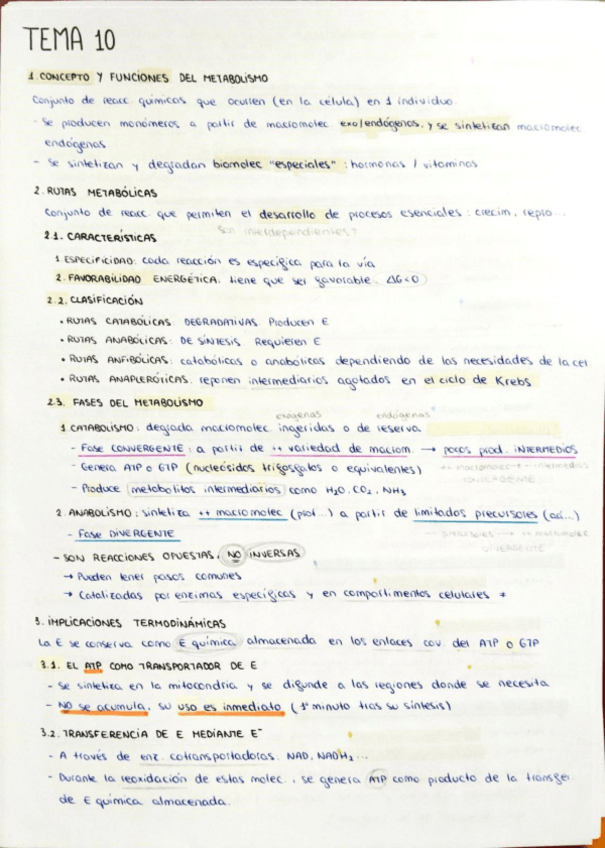 TEMA 10
1. CONCEPTO Y FUNCIONES DEL METABOLISMO
Conjunto de reacc. químicas que ocurren (en la célula) en 1 individuo.
- Se producen monómeros a partir de macromolec. exo/endógenas, y se sintetizan macromolec.
endógenas
- Se sintetizan y degradan biomolec "especiales": hormonas / vitaminas
2. RUTAS METABÓLICAS
Conjunto de reacc. que permiten el desarrollo de procesos esenciales: crecim, repro...
Son interdependientes?
2.1. CARACTERÍSTICAS
1. ESPECIFICIDAD: cada reacción es específica para la vía
2. FAVORABILIDAD ENERGÉTICA: tiene que ser favorable. ΔG<0
2.2. CLASIFICACIÓN
• RUTAS CATABÓLICAS: DEGRADATIVAS. Producen E
• RUTAS ANABÓLICAS: DE SÍNTESIS. Requieren E
• RUTAS ANFIBÓLICAS: catabólicas o anabólicas dependiendo de las necesidades de la cel.
• RUTAS ANAPLERÓTICAS: reponen intermediarios agotados en el ciclo de Krebs
2.3. FASES DEL METABOLISMO
exógenas endógenas
1. CATABOLISMO: degrada macromolec. ingeridas o de reserva
- Fase CONVERGENTE: a partir de ++ variedad de macrom. → pocos prod. INTERMEDIOS
- Genera ATP o GTP (nucleósidos trifosfatos o equivalentes)
++ macromolec → - intermedios
CONVERGENTE
- Produce metabolitos intermediarios como H2O, CO2, NH3
2. ANABOLISMO: sintetiza ++ macromolec (prot...) a partir de limitados precursores (aá...)
- Fase DIVERGENTE
-- precursores → ++ macromolec
DIVERGENTE
- SON REACCIONES OPUESTAS, NO INVERSAS
→ Pueden tener pasos comunes
→ Catalizadas por enzimas específicas y en compartimentos celulares ≠
3. IMPLICACIONES TERMODINÁMICAS
La E se conserva como E química almacenada en los enlaces cov. del ATP o GTP
3.1. EL ATP COMO TRANSPORTADOR DE E
- Se sintetiza en la mitocondria y se difunde a las regiones donde se necesita
- NO se acumula, su uso es inmediato (1er minuto tras su síntesis)
3.2. TRANSFERENCIA DE E MEDIANTE E-
- A través de enz. cotransportadoras: NAD, NADH2...
- Durante la reoxidación de estas molec., se genera ATP como producto de la transfer.
de E química almacenada.